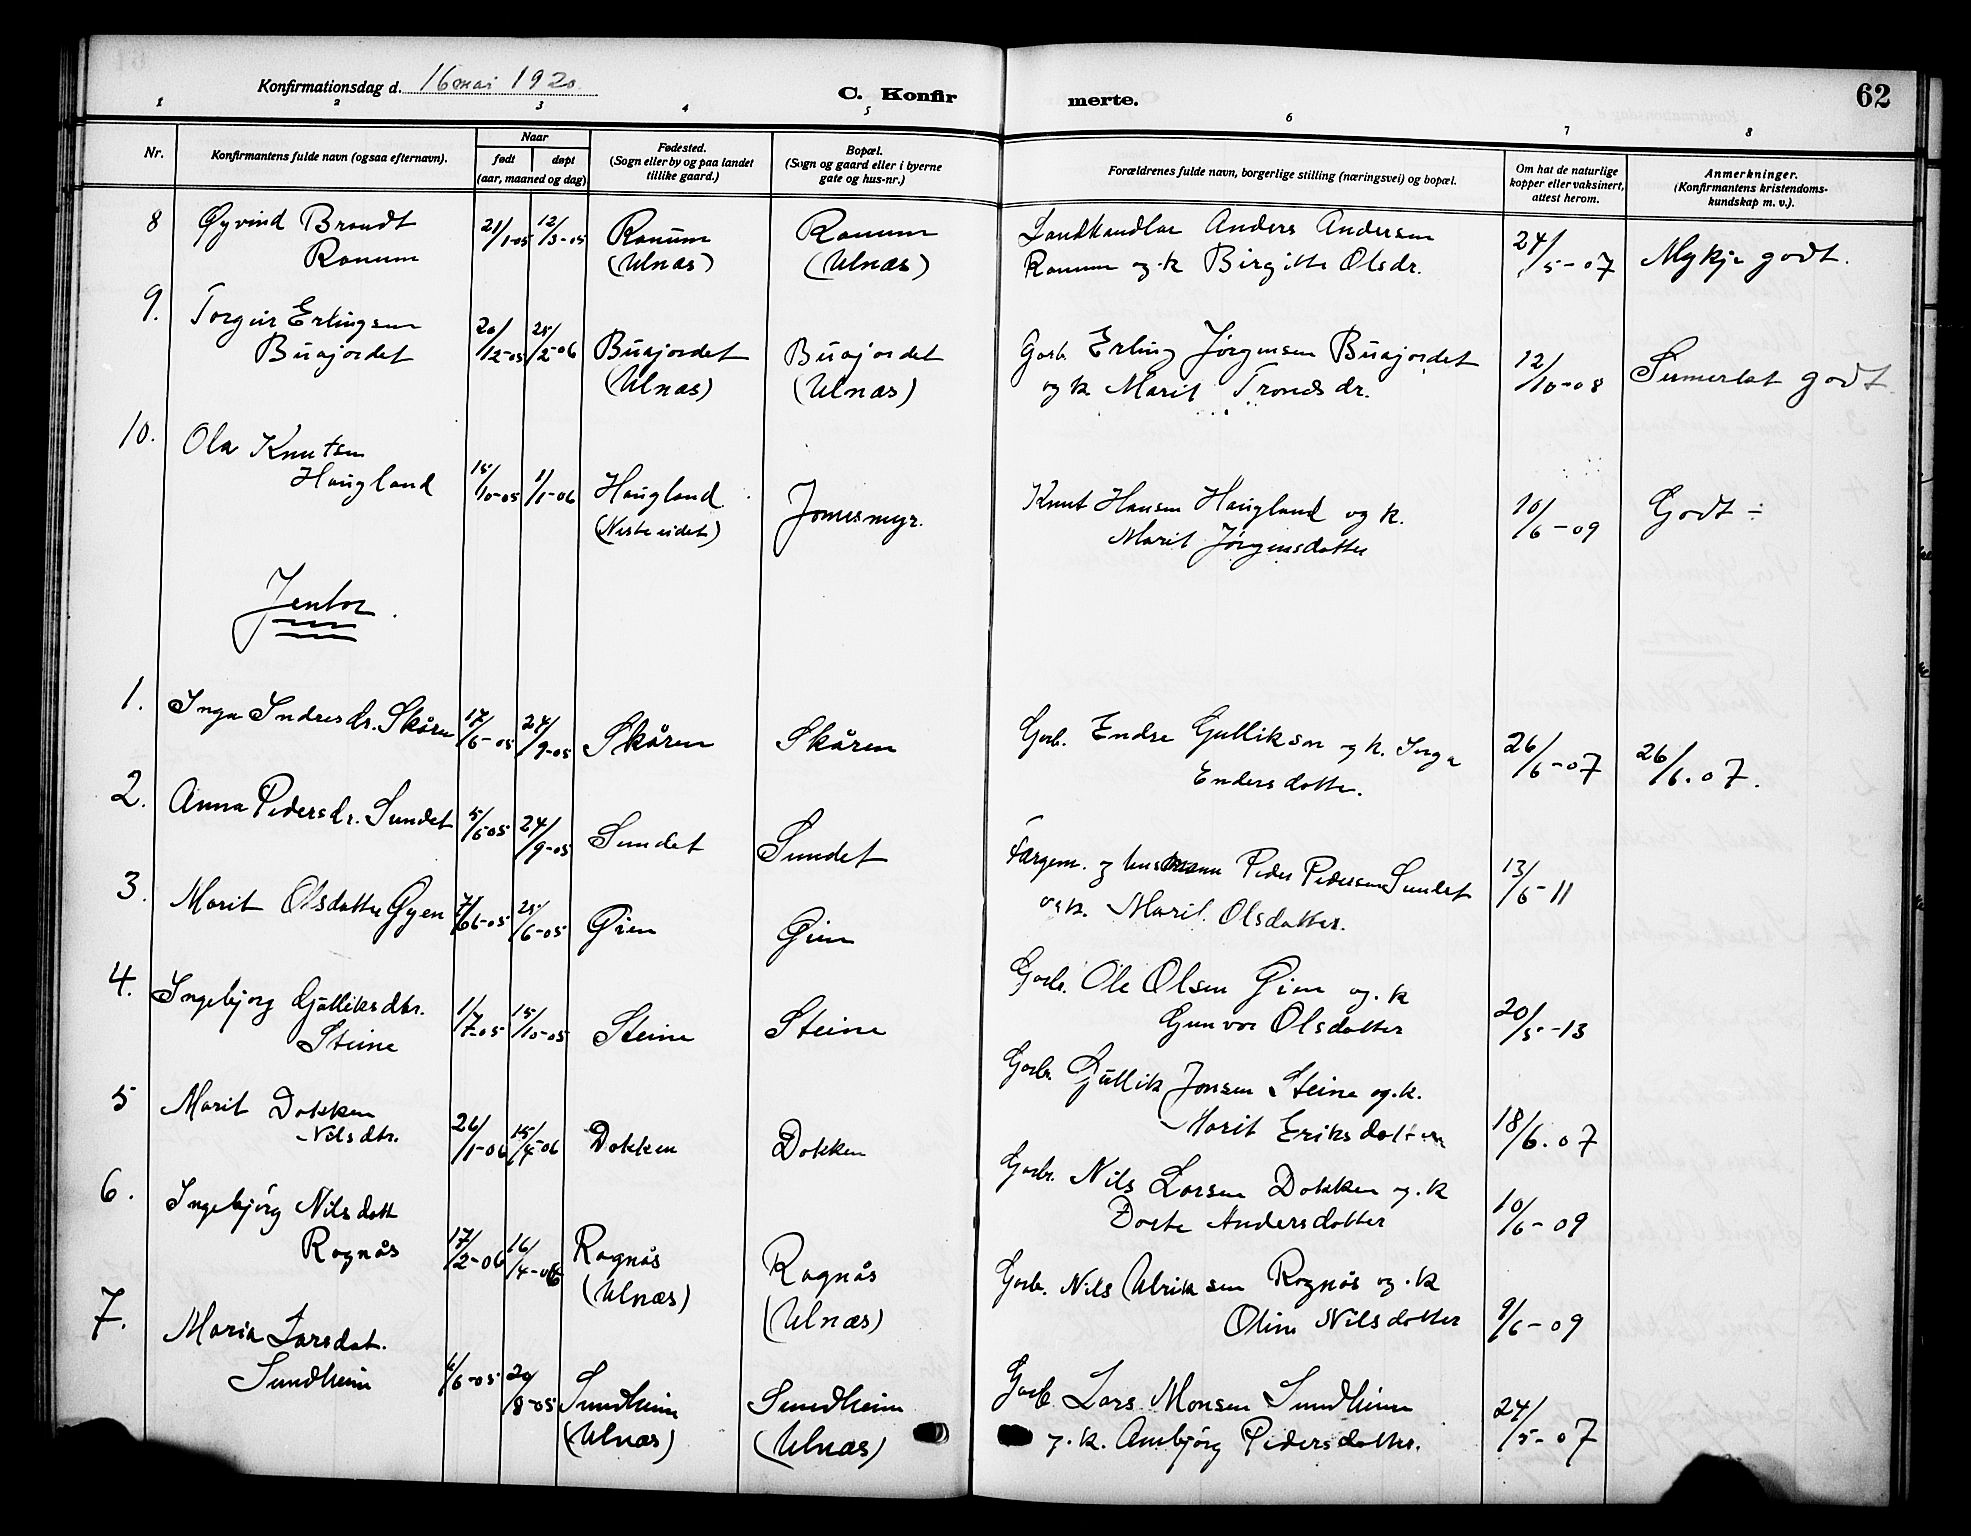 Konfirmationsdag d. 16 mai 1920.
C. Konfirmerte.
62
1 2 3 4 5 6 7 8
Nr.
Konfirmantens fulde navn (ogsaa efternavn).
Naar
født døpt
(aar, maaned og dag)
Fødested.
(Sogn eller by og paa landet
tillike gaard.)
Bopæl.
(Sogn og gaard eller i byerne
gate og hus-nr.)
Forældrenes fulde navn, borgerlige stilling (næringsvei) og bopæl.
Om hat de naturlige
kopper eller vaksinert,
attest herom.
Anmerkninger.
(Konfirmantens kristendoms-
kundskap m. v.).
8 Øyvind Brandt 21/1-05 12/3-05 Ranum Ranum Landhandlar Anders Andersen 24/5-07 Mykje godt.
Ranum (Ulnæs) (Ulnæs) Ranum og k Birgitte Olsdr.
9. Torgeir Erlingsen 20/12-05 25/2-06 Buajordet Buajordet Garb. Erling Jørgensen Buajordet 12/10-08 godt
Buajordet (Ulnæs) (Ulnæs) og k. Marit Trondsdr.
10. Ola Knutsen 15/10-05 1/1-06 Haugland Jomesmyr. Knut Hansen Haugland og k. 10/6-09 Godt ÷
Haugland (Nesteeidet) Marit Jørgensdotter
Jentor.
1. Inga Indresdr. Skåren 17/6-05 24/9-05 Skåren Skåren Garb. Endre Gulliksen og k. Inga 26/6-07 26/6.07.
Endersdotter.
2. Anna Pedersdr. Sundet 5/6-05 24/9-05 Sundet Sundet Fargem. og husmann Peder Pedersen Sundet 13/6-11
og k. Marit Olsdotter.
3. Marit Olsdotter Gyen 7/6-05 25/6-05 Gien Gien Garb. Ole Olsen Gien og. k 20/5-13
Gunvor Olsdotter
4. Ingebjorg Gulliksdtr. 1/7-05 15/10-05 Steine Steine Garbr. Gullik Jonsen Steine og. k. 18/6.07
Steine Marit Eriksdotter
5 Marit Dokken 26/1-06 15/4-06 Dokken Dokken Garbr. Nils Larsen Dokken og. k 10/6-09
Nilsdtr. Dorte Andersdotter
6. Ingebjörg Nilsdott 17/2-06 16/4-06 Rognås Rognås Garbr. Nils Ulriksen Rognås og. k 9/6-09
Rognås (Ulnæs) (Ulnæs) Oline Nilsdotter
7. Maria Larsdot. /6-05 20/8-05 Sundheim Sundheim Garb. Lars Monsen Sundheim 24/5-07
Sundheim (Ulnæs) (Ulnæs) og. k. Ambjörg Pedersdotter.